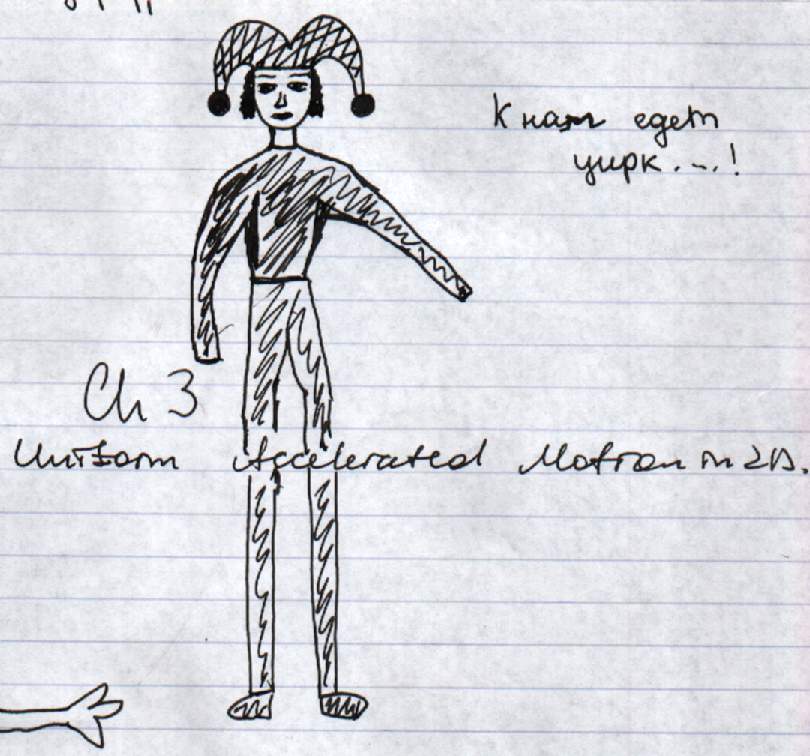 К нам едет
цирк...!
Ch 3
Uniform Accelerated Motion in 2D.